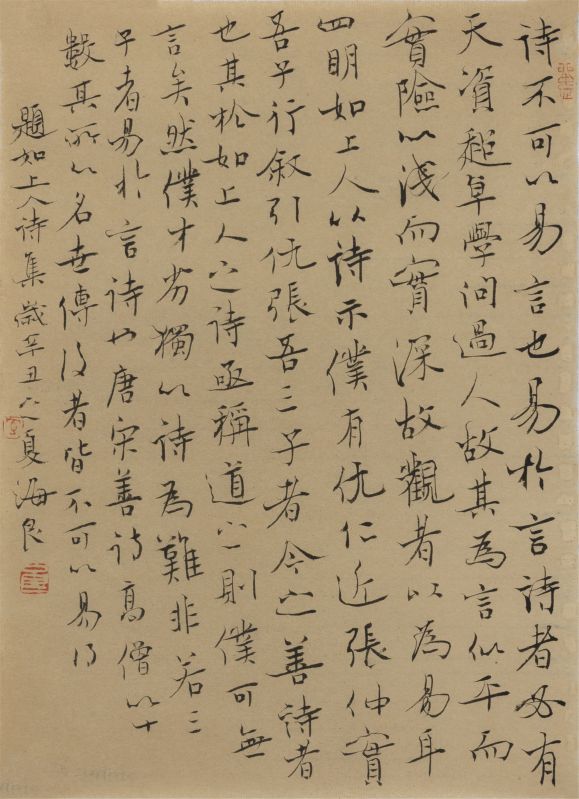 詩不可以易言也易於言詩者必有
天資超卓學问過人故其為言似平而
實險以淺而實深故觀者以為易耳
四明如上人以詩示僕有仇仁近張仲實
吾子行叙引仇張吾三子者今之善詩者
也其於如上人之詩亟稱道之則僕可無
言矣然僕才劣獨以詩為難非若三
子者易於言詩也唐宋善詩高僧以十
數其所以名世傳後者皆不可以易得
題如上人詩集歲辛丑之夏海良